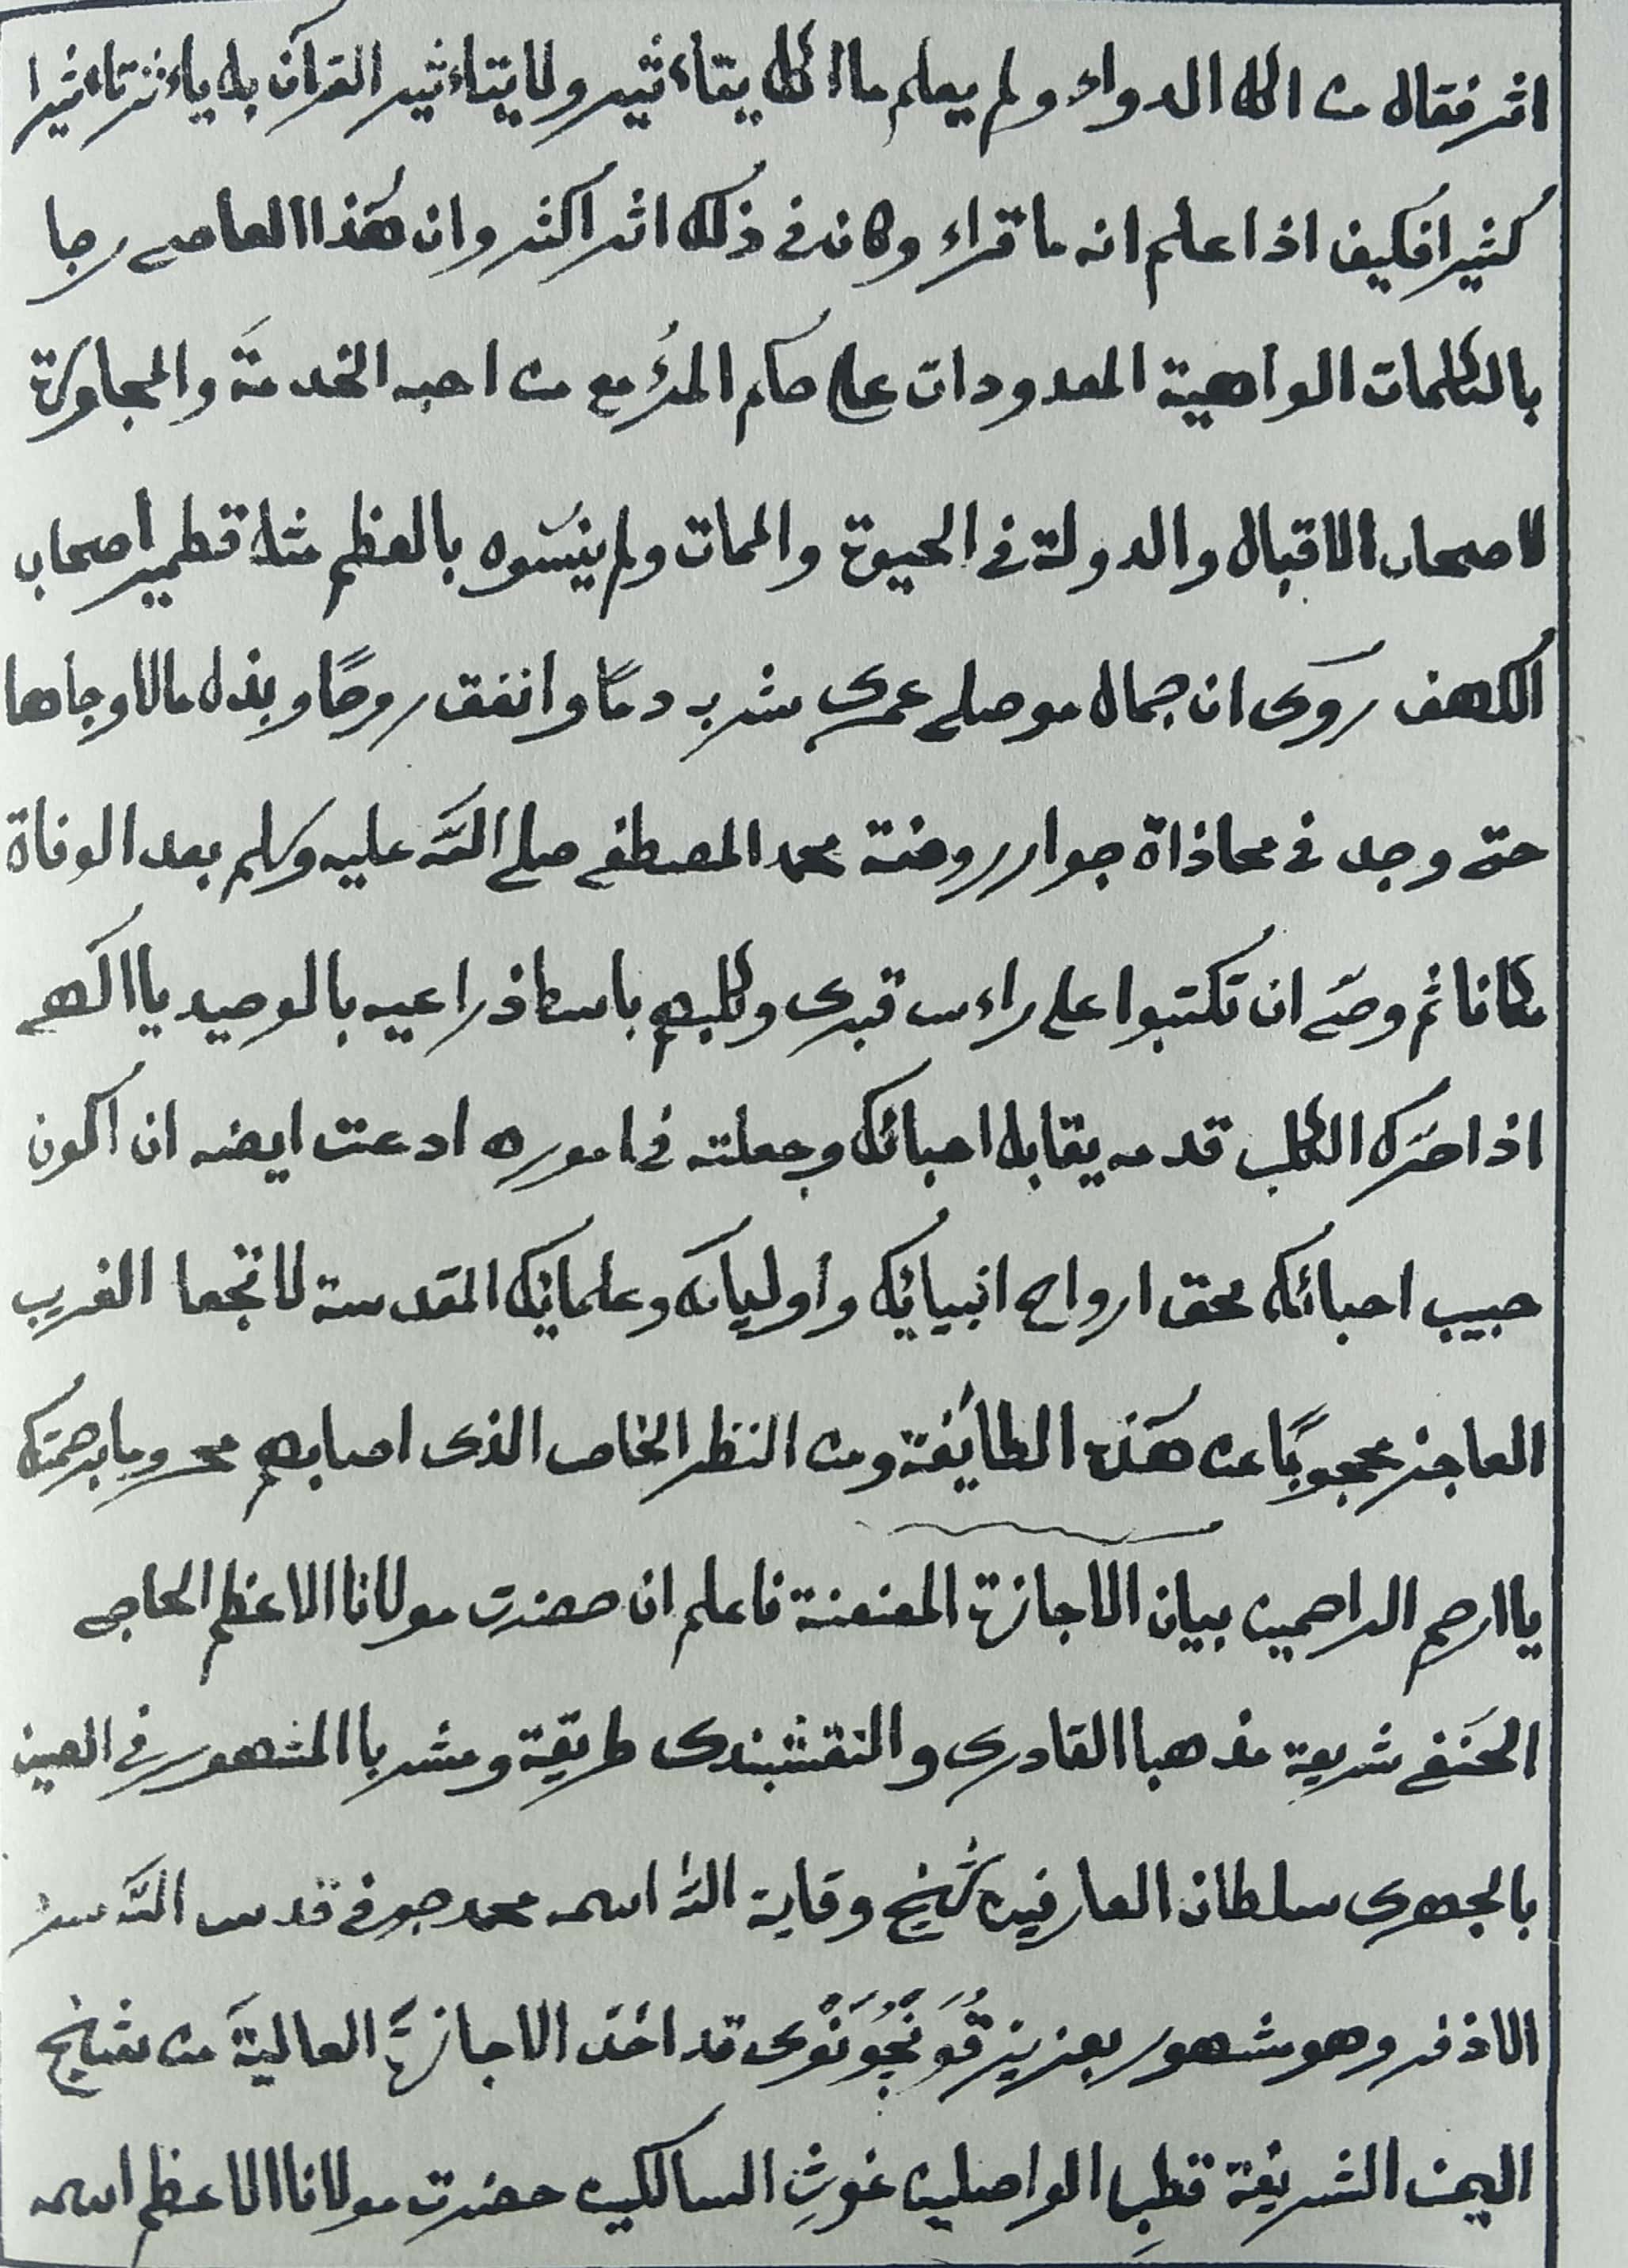 اثر فقال من اكل الدواء ولم يعلم ما اكل يتاءثير ولا يتاءثير القرآن بل ياءثر تاءثيرا
كثيرا فكيف اذا علم انه ما قراء وكان فى ذلك اثر اكثر وان هٰذا العاصى رجا
بالكلمات الواهية المعدودات على حكم المرٔ مع من احبه الخدمة والمجاورة
لاصحاب الاقبال والدولة فى الحيوة والممات ولم ينسوه بالعظم مثل قطمير اصحاب
الكهف روى ان جمال موصلى عمرى شرب دمًا وانفق روحًا وبذل مالا وجاها
حتى وجد فى محاذاة جوار روضة محمد المصطفى صلى الله عليه وسلم بعد الوفاة
مكانا ثم وصّى ان تكتبوا على راءس قبرى وكلبهم باسط ذراعيه بالوصيد يا الٰهى
اذا حرّك الكلب قدمه يقابل احبائك وجعلته فى اموره ادعت ايضه ان اكون
حبيب احبائك بحق ارواح انبيائك واوليائك وعلمائك المقدسة لا تجعا الغريب
العاجز محجوبًا عن هٰذه الطائفة ومن النظر الخاص الذى اصابهم محروما برحمتك
يا ارحم الراحمين بيان الاجازة المعنعنة فاعلم ان حضرت مولانا الاعظم الحاجى
الحنفى شريعة مذهبا القادرى والنقشبندى طريقة ومشربا المشهور فى الصين
بالجهرى سلطان العارفين شيخ وقاية الله اسمه محمد صوفى قدس الله سره
الاذفر وهو شهور بعزيز قُونَجُونْوى قد اخذ الاجازة العالية من شيخ
اليمن الشريفة قطب الواصلين غوث السالكين حضرت مولانا الاعظم اسمه